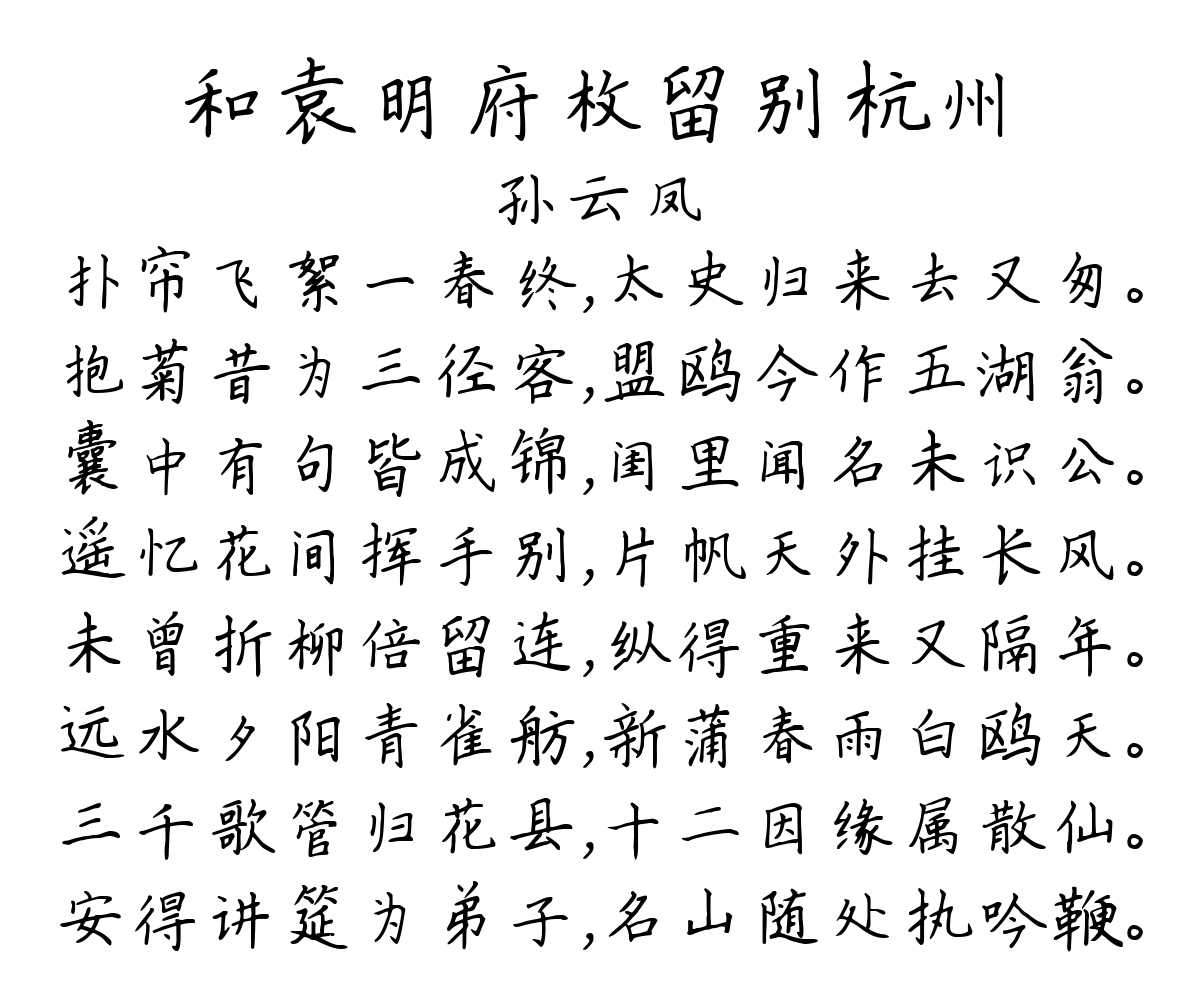 和袁明府枚留别杭州
孙云凤
扑帘飞絮一春终,太史归来去又匆。
抱菊昔为三径客,盟鸥今作五湖翁。
囊中有句皆成锦,闺里闻名未识公。
遥忆花间挥手别,片帆天外挂长风。
未曾折柳倍留连,纵得重来又隔年。
远水夕阳青雀舫,新蒲春雨白鸥天。
三千歌管归花县,十二因缘属散仙。
安得讲筵为弟子,名山随处执吟鞭。